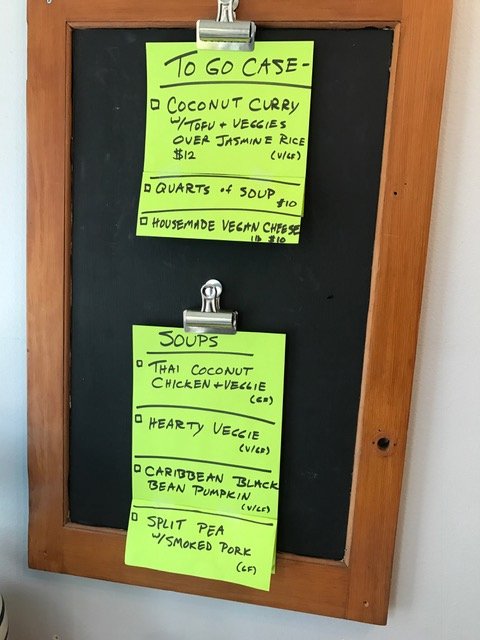 TO GO CASE-
□ COCONUT CURRY
W/TOFU + VEGGIES
OVER JASMINE RICE
$12 (V/GF)
□ QUARTS of SOUP
$10
□ HOUSEMADE VEGAN CHEESE
1LB $10
SOUPS
□ THAI COCONUT
CHICKEN + VEGGIE
(GF)
□ HEARTY VEGGIE
(V/GF)
□ CARIBBEAN BLACK
BEAN PUMPKIN
(V/GF)
□ SPLIT PEA
W/SMOKED PORK
(GF)